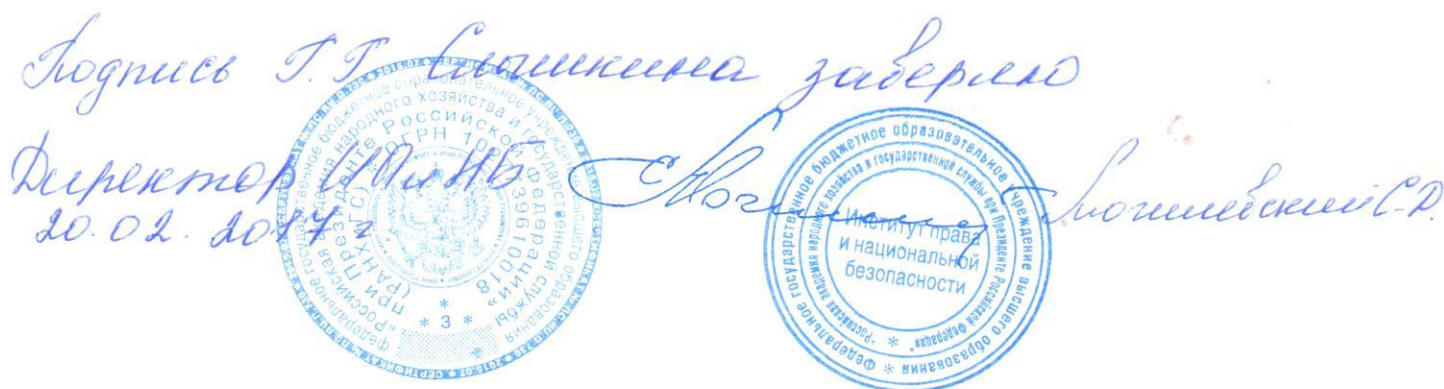 Подпись Г.Г. Слышкина заверяю
Директор ИПиНБ Могилевский С.Д.
20.02.2017 г
Федеральное государственное бюджетное образовательное учреждение высшего образования
"Российская академия народного хозяйства и государственной службы
при Президенте Российской Федерации"
(РАНХиГС) * ОГРН
* 3 *
Федеральное государственное бюджетное образовательное учреждение высшего образования *
"Российская академия народного хозяйства и государственной службы при Президенте Российской Федерации" *
Институт права
и национальной
безопасности